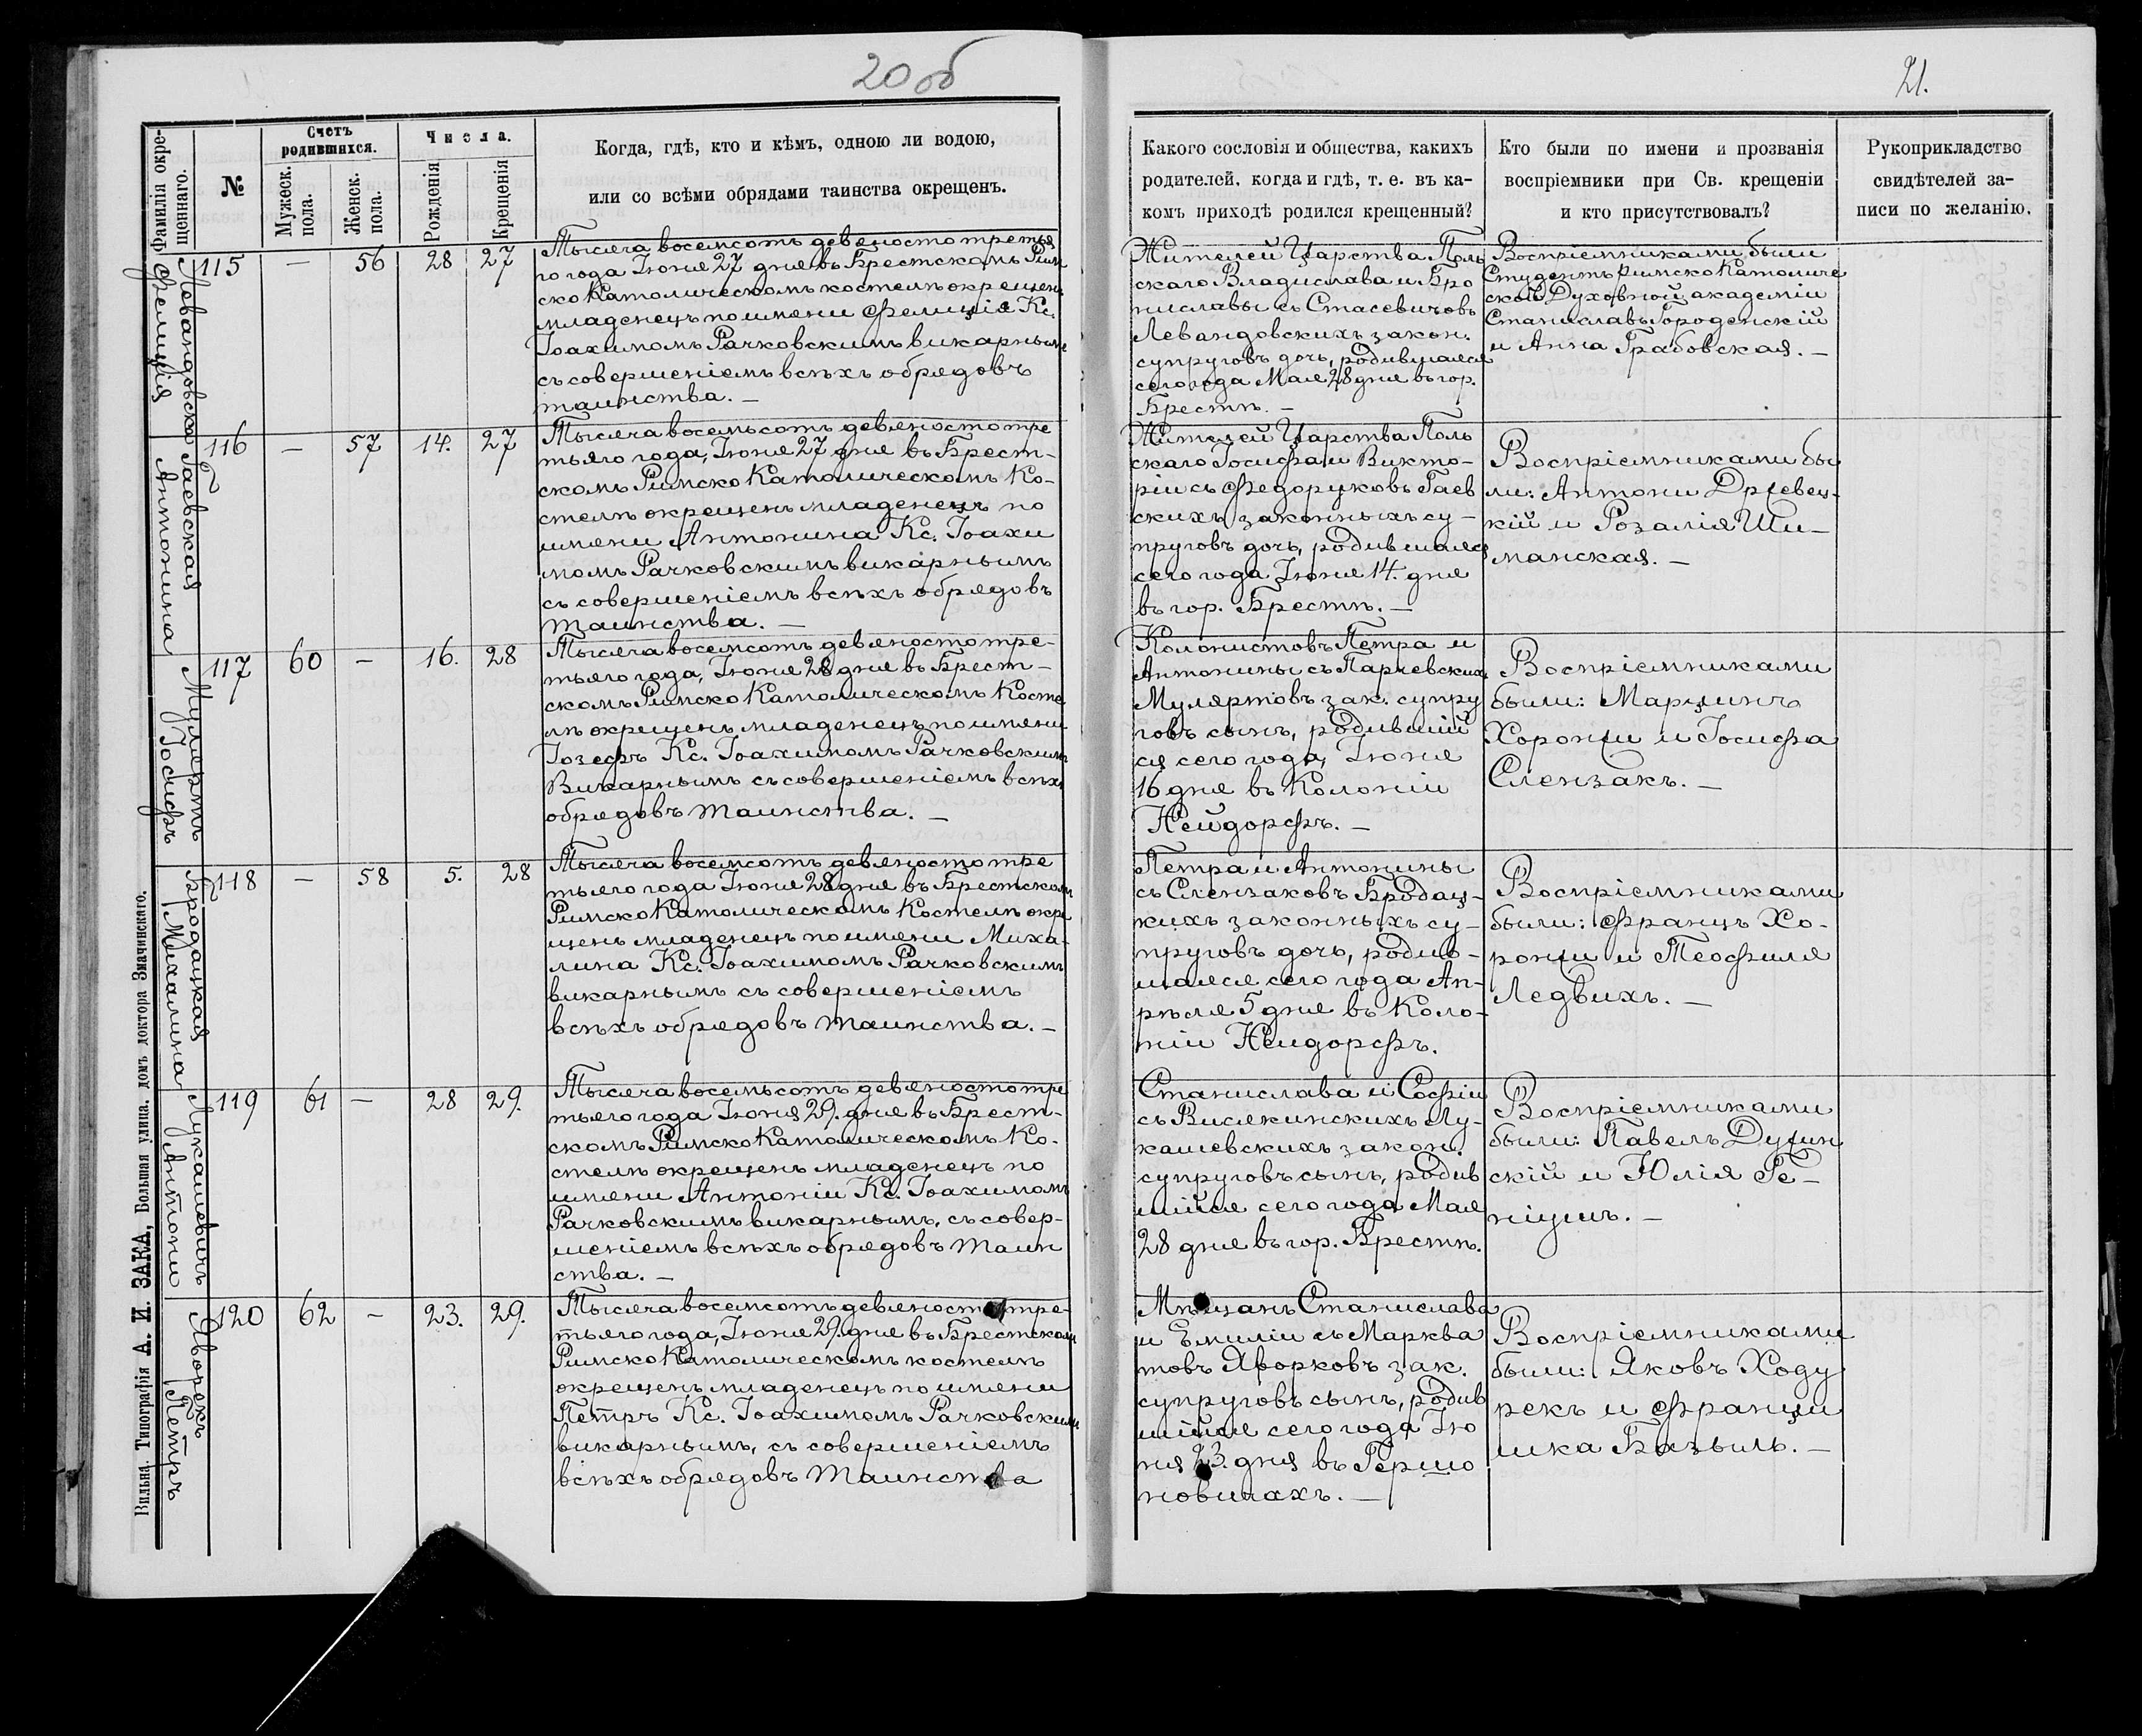 20 об
21.
Фамилія окрещеннаго.
№
Счетъ родившихся.
Мужеск. пола.
Женск. пола.
Числа.
Рожденія
Крещенія
Когда, гдѣ, кто и кѣмъ, одною ли водою,
или со всѣми обрядами таинства окрещенъ.
Какого сословія и общества, какихъ
родителей, когда и гдѣ, т. е. въ ка-
комъ приходѣ родился крещенный?
Кто были по имени и прозванія
воспріемники при Св. крещеніи
и кто присутствовалъ?
Рукоприкладство
свидѣтелей за-
писи по желанію.
Левандовска
Фелиція
115 — 56 28 27
Тысяча восемсотъ девяносто третья
го года Іюня 27 дня въ Брестскомъ Рим
ско Католическомъ костелѣ окрещенъ
младенецъ по имени Фелиція Кс.
Іоахимомъ Рачковскимъ викарнымъ
съ совершеніемъ всѣхъ обрядовъ
таинства. —
Жителей Царства Поль
скаго Владислава и Бро
ниславы съ Стасевичовъ
Левандовскихъ закон.
супруговъ дочь, родившаяся
сего года Мая 28 дня въ гор.
Брестѣ. —
Воспріемниками были
Студентъ Римско Католиче
ской Духовной академіи
Станиславъ Городенскій
и Анна Грабовская. —
Гаевская
Антонина
116 — 57 14. 27
Тысяча восемьсотъ девяносто тре
тьяго года, Іюня 27 дня въ Брест-
скомъ Римско Католическомъ Ко-
стелѣ окрещенъ младенецъ по
имени Антонина Кс. Іоахи
момъ Рачковскимъ викарнымъ
съ совершеніемъ всѣхъ обрядовъ
таинства. —
Жителей Царства Поль
скаго Іосифа и Викто-
ріи съ Федоруковъ Гаев
скихъ законныхъ су-
пруговъ дочь, родившаяся
сего года Іюня 14. дня
въ гор. Брестѣ. —
Воспріемниками бы
ли: Антони Држевец-
кій и Розалія Ши-
манская. —
Мулертъ
Іосифъ
117 60 — 16. 28
Тысяча восемсотъ девяносто тре-
тьяго года, Іюня 28 дня въ Брест-
скомъ Римско Католическомъ Косте
лѣ окрещенъ младенецъ по имени
Іозефъ Кс. Іоахимомъ Рачковскимъ
Викарнымъ съ совершеніемъ всѣхъ
обрядовъ таинства. —
Колонистовъ Петра и
Антонины съ Парчевских
Муляртовъ зак. супру
говъ сынъ, родившій
ся сего года, Іюня
16 дня въ Колоніи
Нейдорфъ. —
Воспріемниками
были: Марцинъ
Хоронжи и Іосифа
Слензакъ. —
Бродацкая
Михалина
118 — 58 5. 28
Тысяча восемсотъ девяносто тре
тьяго года Іюня 28 дня въ Брестском
Римско Католическомъ Костелѣ окре
щенъ младенецъ по имени Миха-
лина Кс. Іоахимомъ Рачковскимъ
викарнымъ съ совершеніемъ
всѣхъ обрядовъ таинства. —
Петра и Антонины
съ Слензаковъ Бродац-
кихъ законныхъ су-
пруговъ дочь, родив-
шаяся сего года Ап-
рѣля 5 дня въ Коло-
ніи Нейдорфъ.
Воспріемниками
были: Францъ Хо-
ронжи и Теофиля
Ледвихъ. —
Лукашевичъ
Антони
119 61 — 28 29.
Тысяча восемьсотъ девяносто тре
тьяго года Іюня 29. дня въ Брест-
скомъ Римско Католическомъ Ко-
стелѣ окрещенъ младенецъ по
имени Антоніи Кс. Іоахимомъ
Рачковскимъ викарнымъ, съ совер-
шеніемъ всѣхъ обрядовъ таин
ства. —
Станислава и Софіи
съ Висякинскихъ Лу-
кашевскихъ закон.
супруговъ сынъ, родив
шійся сего года Мая
28 дня въ гор. Брестѣ.
Воспріемниками
были: Павелъ Дужин
скій и Юлія Ре-
ніушъ. —
Яворекъ
Петръ
120 62 — 23. 29.
Тысяча восемсотъ девяносто тре-
тьяго года, Іюня 29. дня въ Брестском
Римско Католическомъ костелѣ
окрещенъ младенецъ по имени
Петръ Кс. Іоахимомъ Рачковским
викарнымъ, съ совершеніемъ
всѣхъ обрядовъ таинства
Мѣщанъ Станислава
и Емиліи съ Марква
товъ Яворковъ зак.
супруговъ сынъ, родив
шійся сего года Ію
ня 23. дня въ Гершо
новичахъ. —
Воспріемниками
были: Яковъ Ходу
рекъ и Францы
шка Базыль. —
Вильна. Типографія А. И. ЗАКА, Большая улица, домъ доктора Значинскаго.